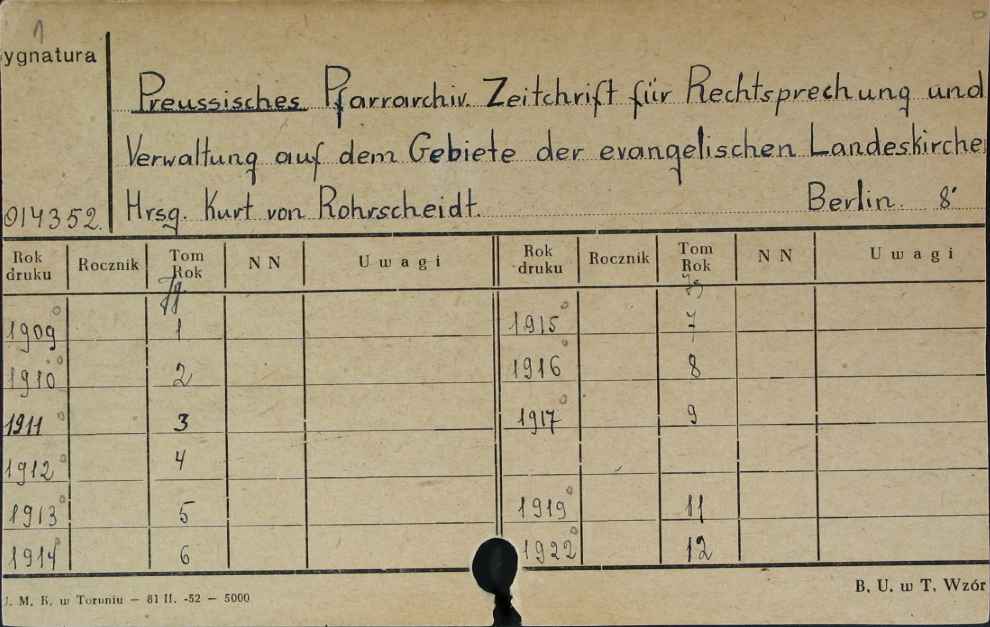 1
ygnatura
Preussisches Pfarrarchiv. Zeitchrift für Rechtsprechung und
Verwaltung auf dem Gebiete der evangelischen Landeskirche
014352. Hrsg. Kurt von Rohrscheidt. Berlin. 8°
Rok druku Rocznik Tom Rok NN Uwagi Rok druku Rocznik Tom Rok NN Uwagi
Jg. Jg
1909° 1 1915° 7
1910° 2 1916° 8
1911° 3 1917° 9
1912° 4
1913° 5 1919° 11
1914° 6 1922° 12
J. M. K. w Toruniu — 81 II. -52 — 5000 B. U. w T. Wzór